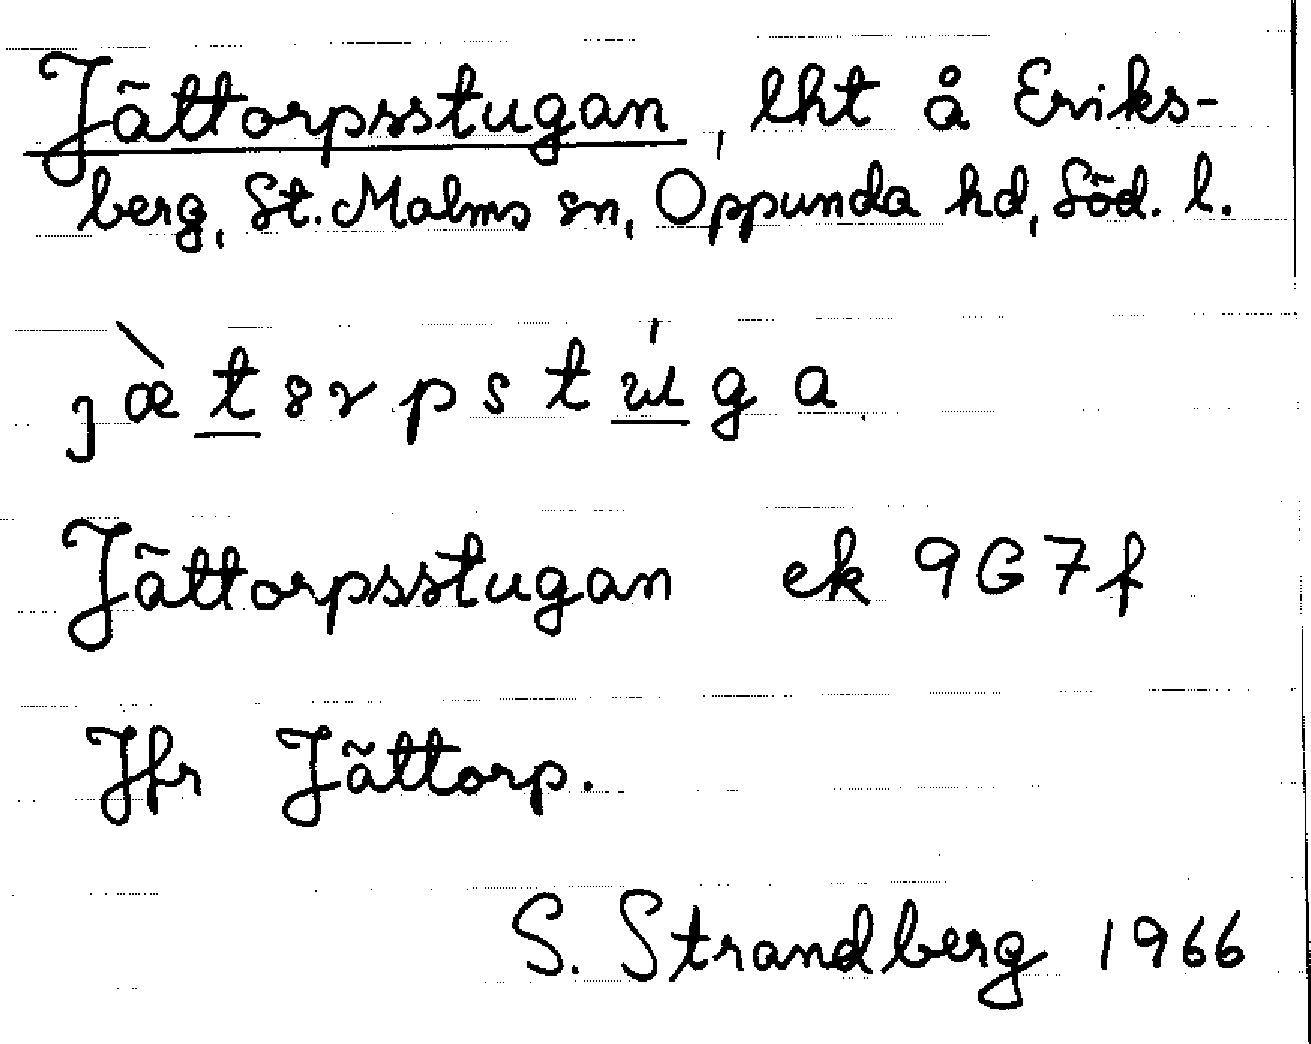 Jättorpsstugan, lht å Eriks-
berg, St. Malms sn, Oppunda hd, Söd. l.
Jättorpsstugan ek 9G7f
Jfr Jättorp.
S. Strandberg 1966